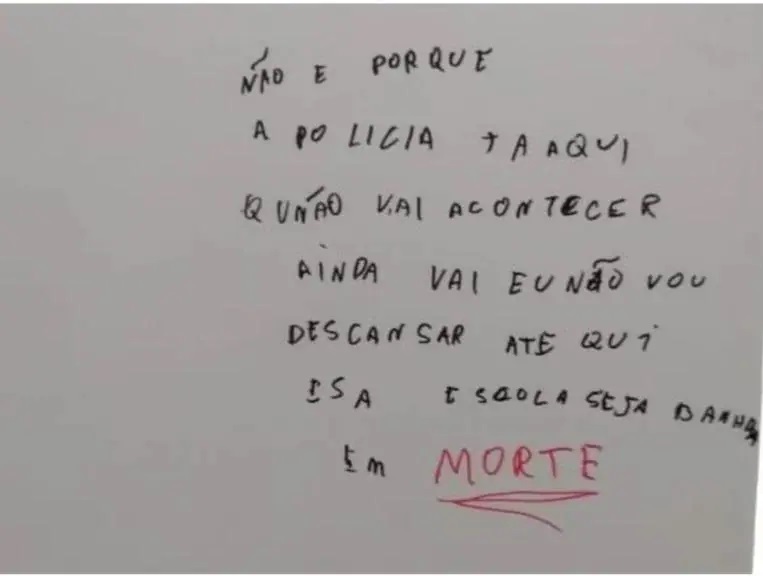 NÃO E PORQUE
A POLICIA TA AQUI
QUNÃO VAI ACONTECER
AINDA VAI EU NÃO VOU
DESCANSAR ATE QUI
ESA ESCOLA SEJA BANHA
Em MORTE